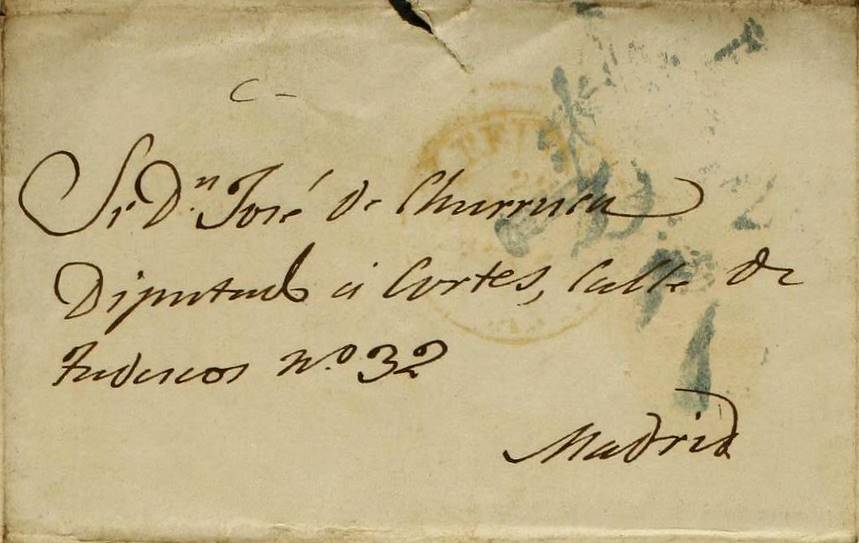 C-
Sr Dn José de Churruca
Diputado á Cortes, Calle de
Tudescos nº 32
Madrid